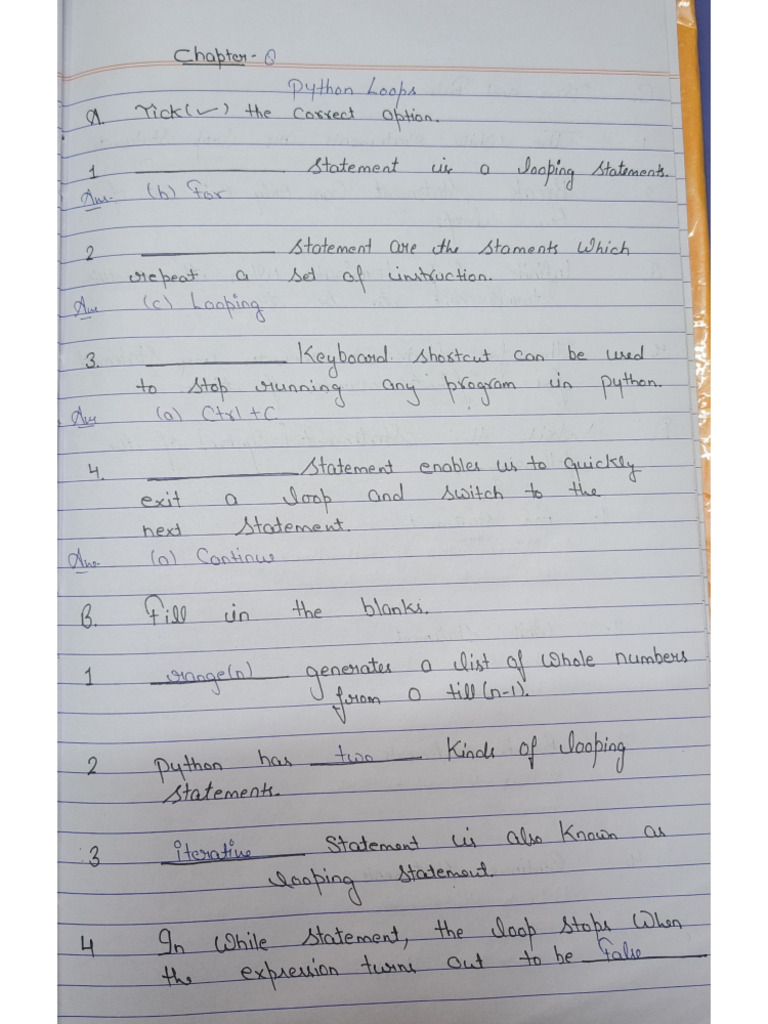 Chapter - 8
Python Loops
A. Tick(✓) the correct option.
1 ________ statement is a looping statements.
Ans. (b) For
2 ________ statement are the staments which
repeat a set of instruction.
Ans (c) Looping
3. ________ Keyboard shortcut can be used
to stop running any program in python.
Ans (a) Ctrl + C
4. ________ statement enables us to quickly
exit a loop and switch to the
next statement.
Ans. (a) Continue
B. Fill in the blanks.
1 range(n) generates a list of whole numbers
from 0 till (n-1).
2 Python has two kinds of looping
statements.
3 iterative statement is also known as
looping statement.
4 In While statement, the loop stops when
the expression turns out to be False